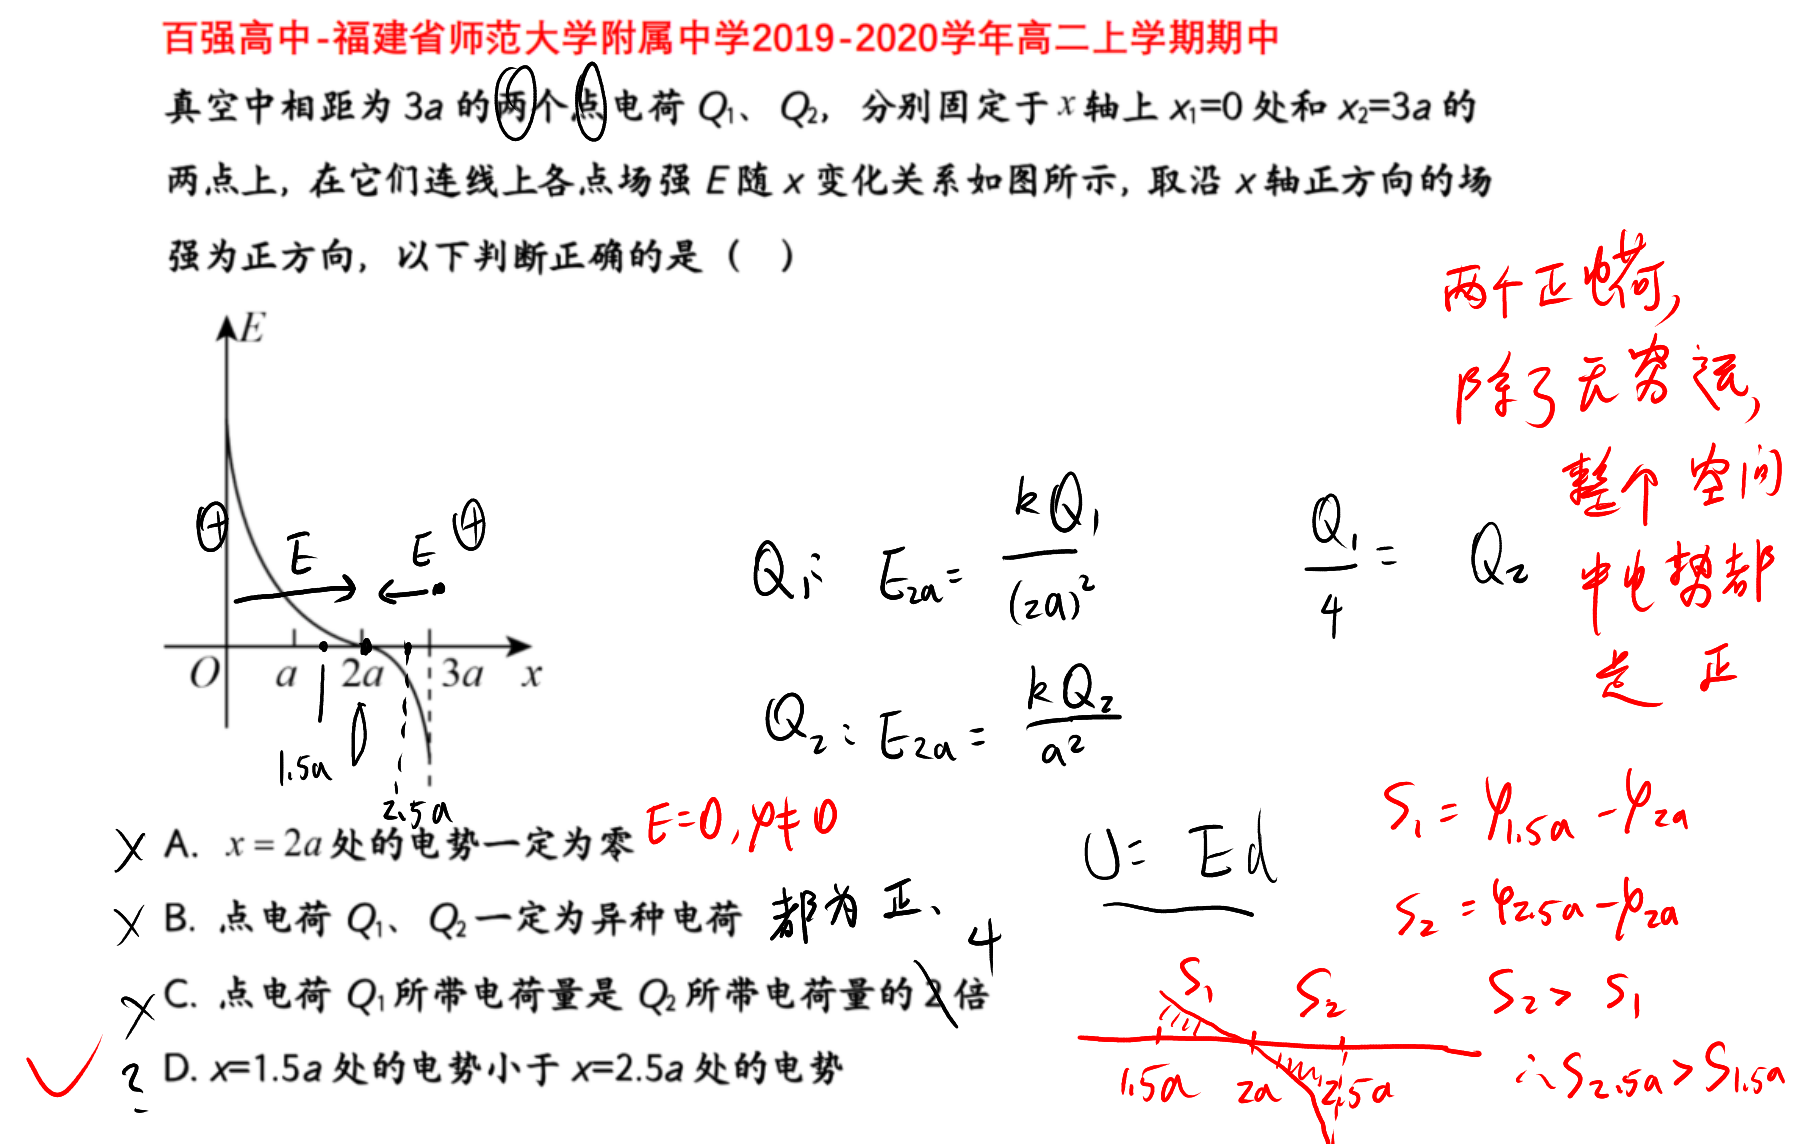 百强高中-福建省师范大学附属中学2019-2020学年高二上学期期中
真空中相距为 3a 的两个点电荷 Q₁、Q₂，分别固定于 x 轴上 x₁=0 处和 x₂=3a 的
两点上，在它们连线上各点场强 E 随 x 变化关系如图所示，取沿 x 轴正方向的场
强为正方向，以下判断正确的是（ ）
两个正电荷，
除了无穷远，
整个空间
中电势都
是 正
E
+ E E +
O a 2a 3a x
1.5a
2.5a
Q₁: E₂ₐ= kQ₁/(2a)²
Q₁/4 = Q₂
Q₂: E₂ₐ= kQ₂/a²
× A. x = 2a 处的电势一定为零 E=0, φ≠0
× B. 点电荷 Q₁、Q₂一定为异种电荷 都为正、
4
× C. 点电荷 Q₁所带电荷量是 Q₂所带电荷量的 2 倍
? D. x=1.5a 处的电势小于 x=2.5a 处的电势
U= Ed
S₁ = φ₁.₅ₐ - φ₂ₐ
S₂ = φ₂.₅ₐ - φ₂ₐ
S₂ > S₁
∴ S₂.₅ₐ > S₁.₅ₐ
S₁ S₂
1.5a 2a 2.5a